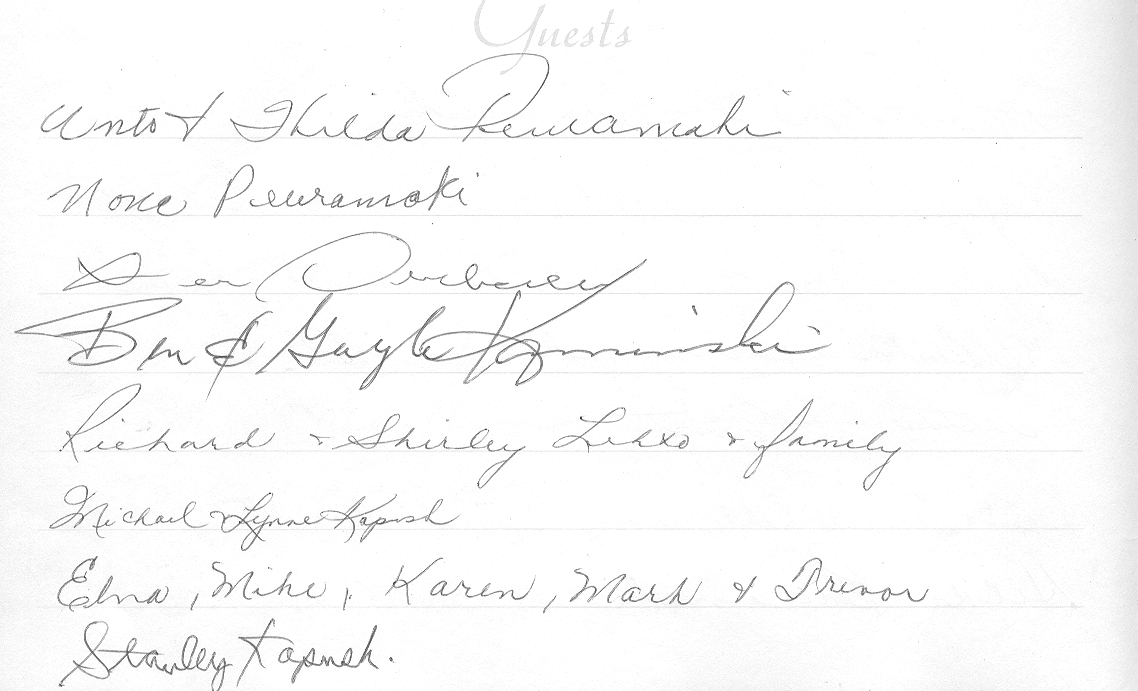 Guests
Unto & Hilda Peuramaki
None Peuramaki
Ben & Gayle Kaminski
Richard & Shirley Lehto & family
Michael & Lynne Kapush
Edna, Mike, Karen, Mark & Trevor
Stanley Kapush.